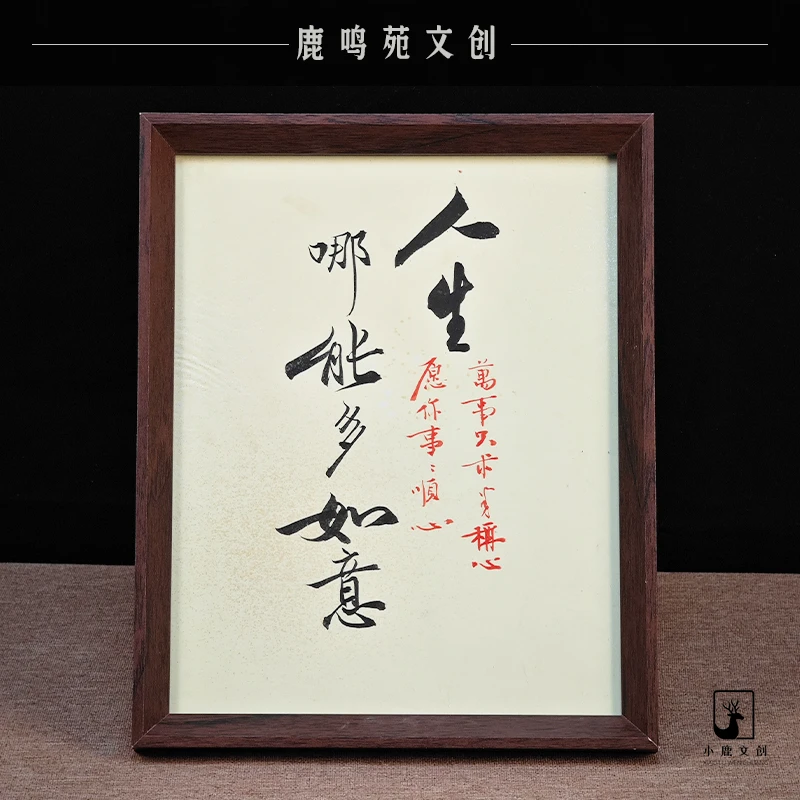 鹿鸣苑文创
人生
哪能多如意
萬事只求半稱心
愿你事:順心
小鹿文创